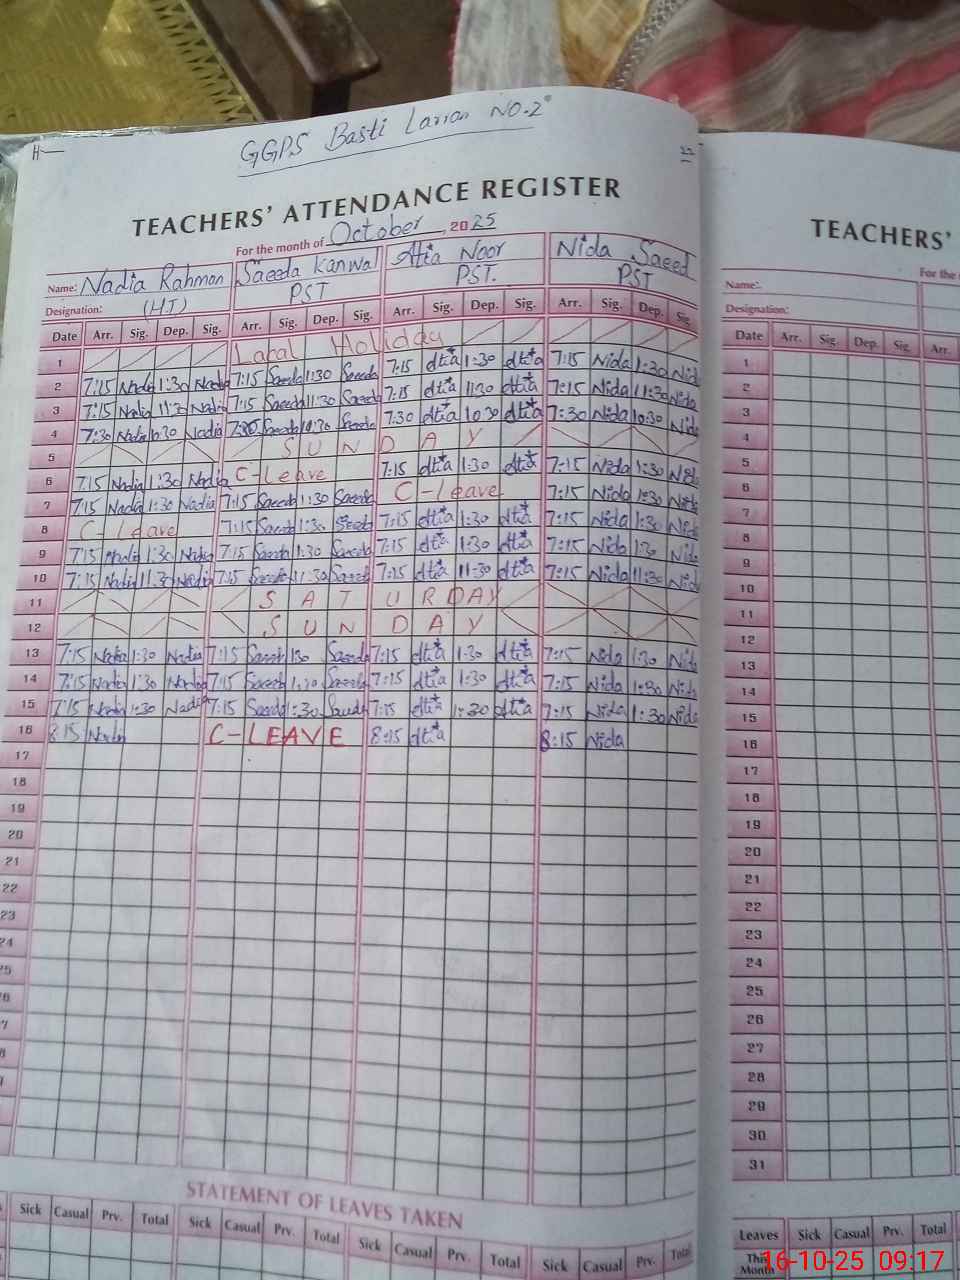 H—
GGPS Basti Larran NO-2
22
TEACHERS' ATTENDANCE REGISTER
For the month of October, 2025
Name: Nadia Rahman Saeeda Kanwal Attia Noor Nida Saeed
Designation: (HT) PST PST. PST
Date Arr. Sig. Dep. Sig. Arr. Sig. Dep. Sig. Arr. Sig. Dep. Sig. Arr. Sig. Dep. Sig.
1 Local Holiday
2 7:15 Nadia 1:30 Nadia 7:15 Saeeda 1:30 Saeeda 7:15 Attia 1:30 Attia 7:15 Nida 1:30 Nid
3 7:15 Nadia 11:30 Nadia 7:15 Saeeda 11:30 Saeeda 7:15 Attia 11:30 Attia 7:15 Nida 11:30 Nida
4 7:30 Nadia 10:30 Nadia 7:30 Saeeda 10:30 Saeeda 7:30 Attia 10:30 Attia 7:30 Nida 10:30 Nida
5 SUNDAY
6 7:15 Nadia 1:30 Nadia C-Leave 7:15 Attia 1:30 Attia 7:15 Nida 1:30 Nida
7 7:15 Nadia 1:30 Nadia 7:15 Saeeda 1:30 Saeeda C-Leave 7:15 Nida 1:30 Nida
8 C-Leave 7:15 Saeeda 1:30 Saeeda 7:15 Attia 1:30 Attia 7:15 Nida 1:30 Nida
9 7:15 Nadia 1:30 Nadia 7:15 Saeeda 1:30 Saeeda 7:15 Attia 1:30 Attia 7:15 Nida 1:30 Nida
10 7:15 Nadia 11:30 Nadia 7:15 Saeeda 11:30 Saeeda 7:15 Attia 11:30 Attia 7:15 Nida 11:30 Nid
11 SATURDAY
12 SUNDAY
13 7:15 Nadia 1:30 Nadia 7:15 Saeeda 130 Saeeda 7:15 Attia 1:30 Attia 7:15 Nida 1:30 Nida
14 7:15 Nadia 1:30 Nadia 7:15 Saeeda 1:30 Saeeda 7:15 Attia 1:30 Attia 7:15 Nida 1:30 Nida
15 7:15 Nadia 1:30 Nadia 7:15 Saeeda 1:30 Saeeda 7:15 Attia 1:30 Attia 7:15 Nida 1:30 Nida
16 8:15 Nadia C-LEAVE 8:15 Attia 8:15 Nida
17
18
19
20
21
22
23
24
25
26
STATEMENT OF LEAVES TAKEN
Sick Casual Prv. Total Sick Casual Prv. Total Sick Casual Prv. Total Sick Casual Prv. Total
TEACHERS'
For the
Name:
Designation:
Date Arr. Sig. Dep. Sig. Arr.
1
2
3
4
5
6
7
8
9
10
11
12
13
14
15
16
17
18
19
20
21
22
23
24
25
26
27
28
29
30
31
Leaves Sick Casual Prv. Total
This Month
16-10-25 09:17